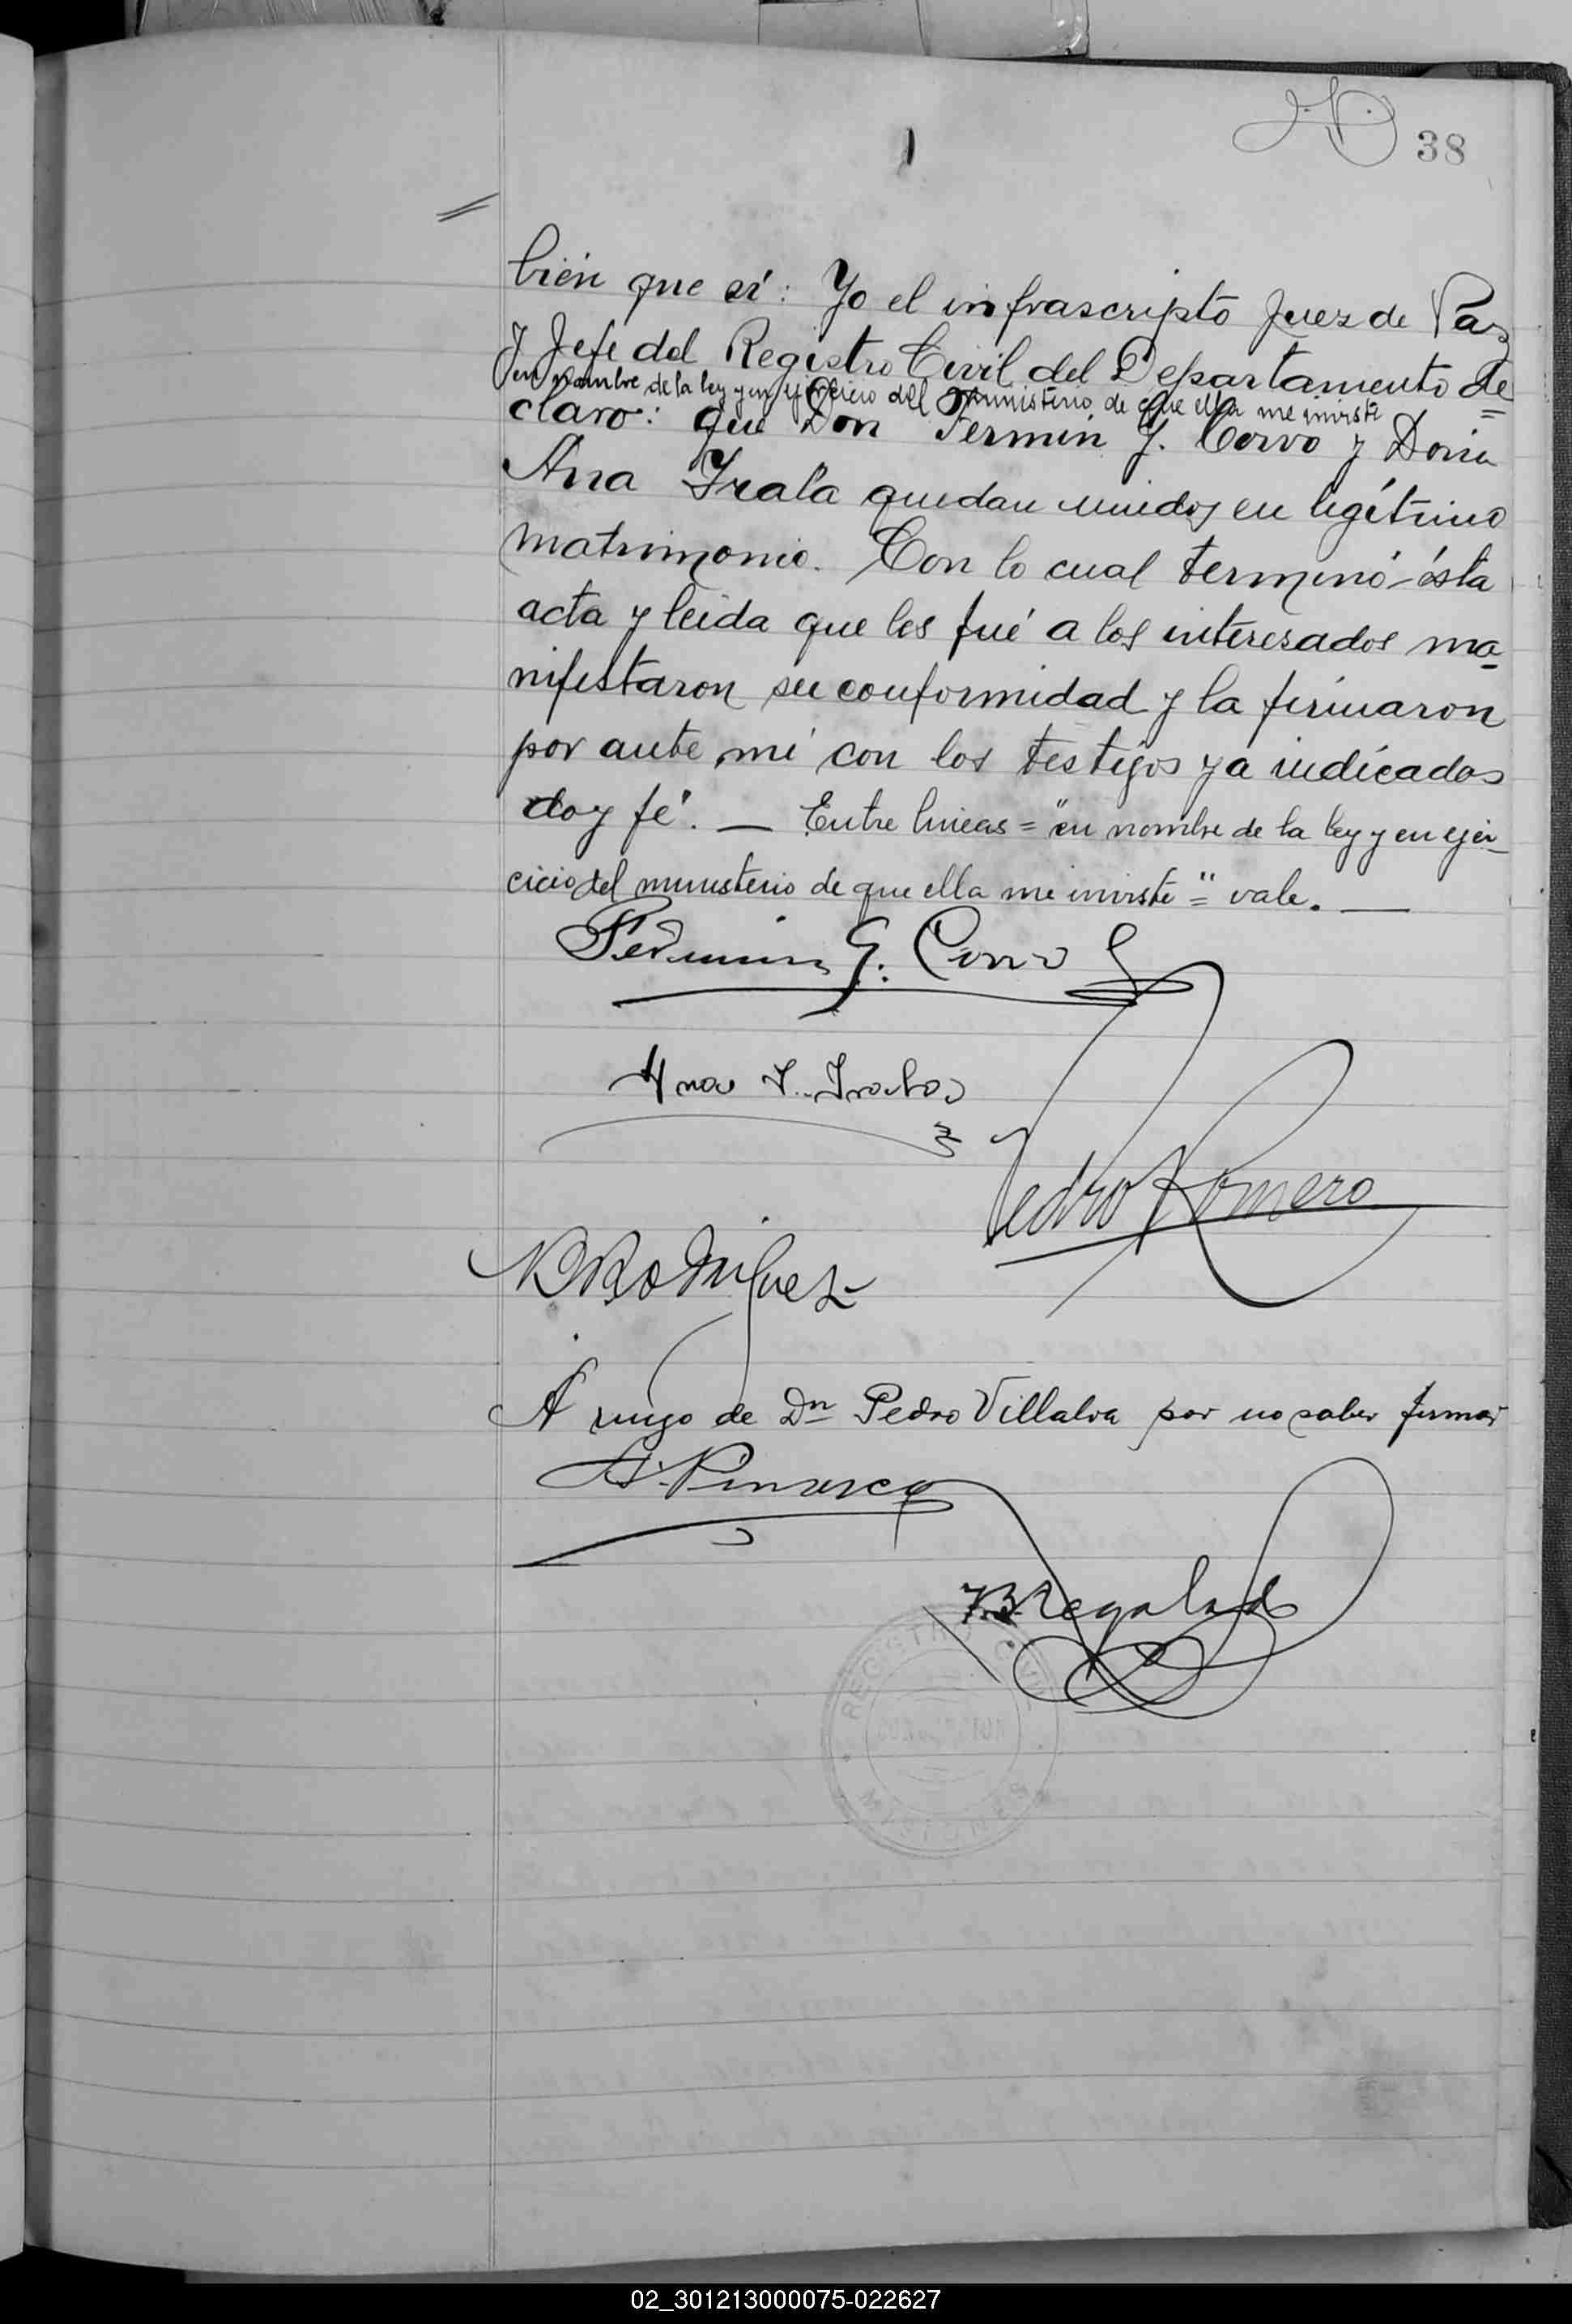 38
bién que sí: Yo el infrascripto Juez de Paz
y Jefe del Registro Civil del Departamento de
en nombre de la ley y en ejercicio del ministerio de que ella me inviste
claro: que Don Fermin G. Corvo y Doña
Ana Irala quedan unidos en legítimo
matrimonio. Con lo cual terminó ésta
acta y leida que les fué a los interesados ma
nifestaron su conformidad y la firmaron
por ante mi con los testigos ya indicados
doy fé. — Entre lineas = "en nombre de la ley y en ejer
cicio del ministerio de que ella me inviste" = vale. —
Fermin G. Corvo
Ana I. Irala
Pedro Romero
N Rodriguez
A ruego de Dn Pedro Villalva por no saber firmar
Regalado
REGISTRO CIVIL
MISIONES
02_301213000075-022627